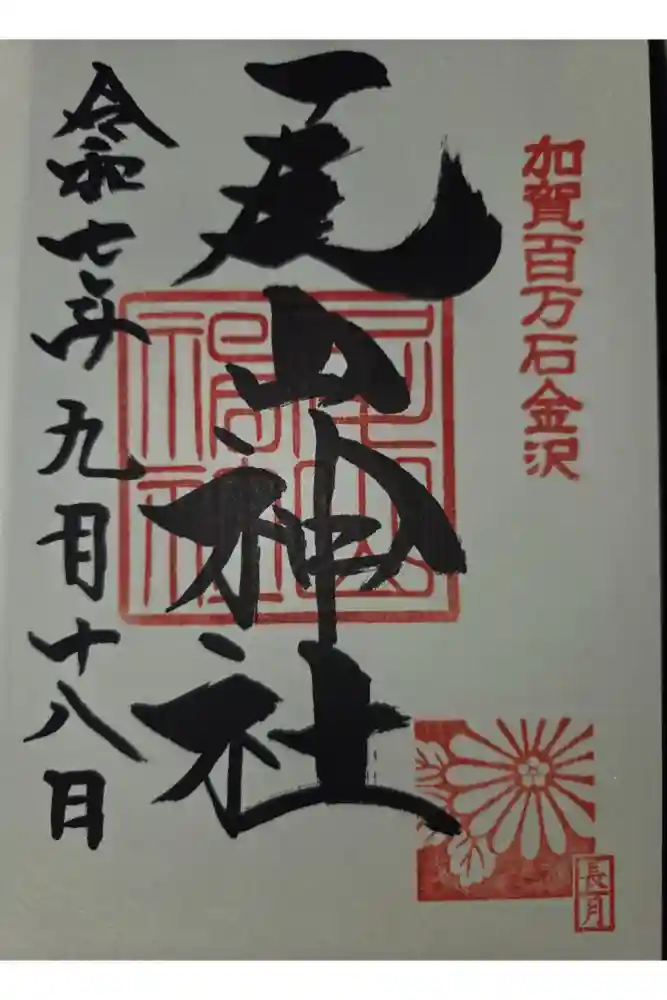 加賀百万石金沢
尾山神社
令和七年九月十八日
尾山神社
長月